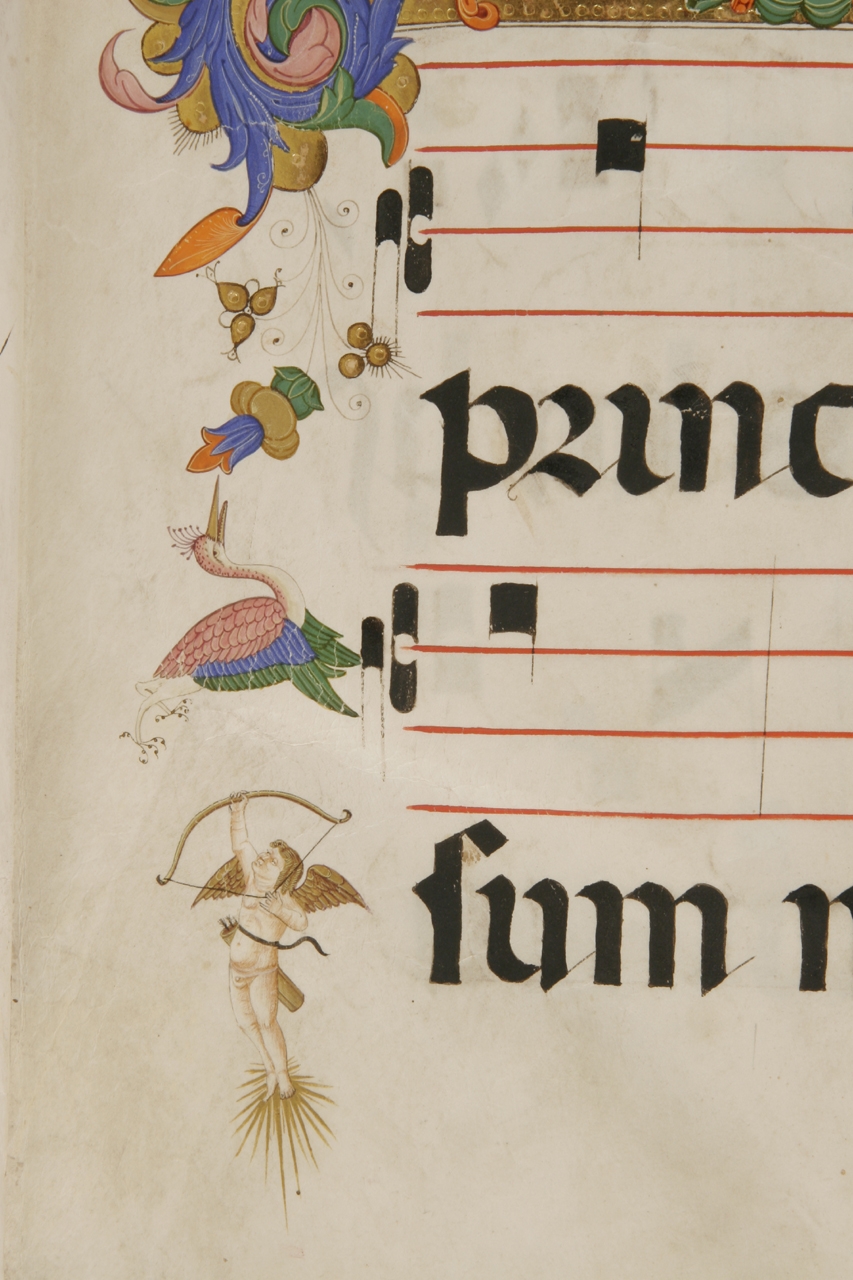 princ
sum